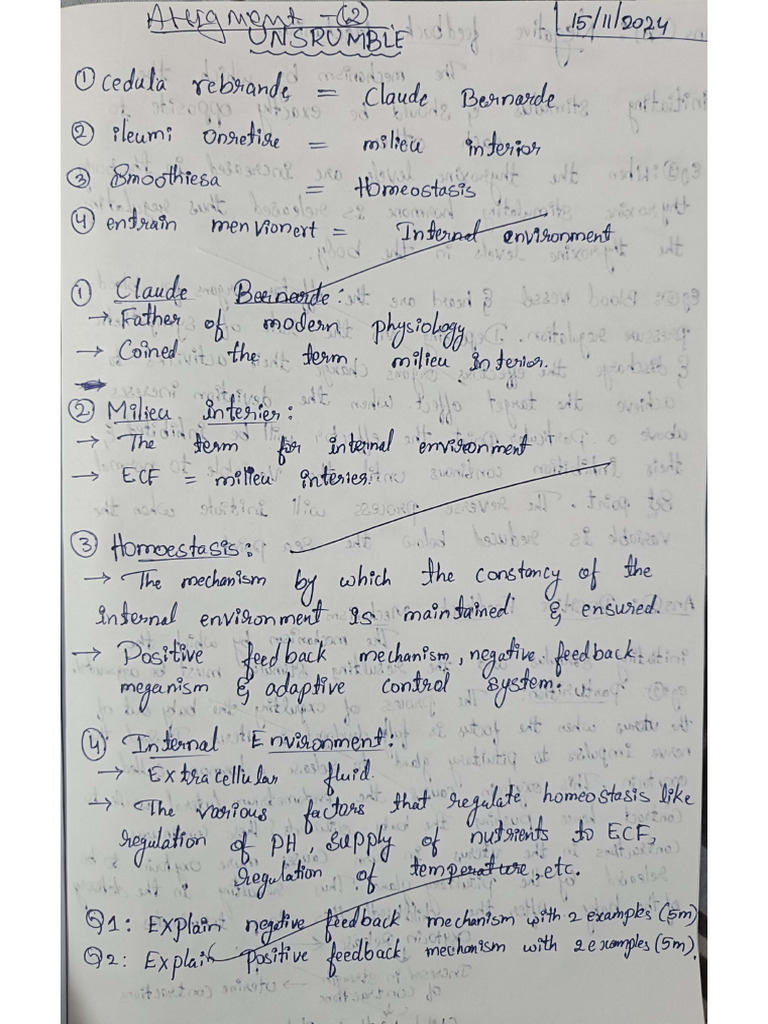 Assignment - (2)
15/11/2024
UNSRUMBLE
① cedula rebrande = Claude Bernarde
② ileumi Onretire = milieu interior
③ Bmoothiesa = Homeostasis
④ entrain menvionert = Internal environment
① Claude Bernarde:
→ Father of modern physiology
→ Coined the term milieu interior.
② Milieu interier:
→ The term for internal environment
→ ECF = milieu interier.
③ Homoestasis:
→ The mechanism by which the constancy of the
internal environment is maintained & ensured.
→ Positive feedback mechanism, negative feedback
meganism & adaptive control system.
④ Internal Environment:
→ Extracellular fluid.
→ The various factors that regulate homeostasis like
regulation of PH, supply of nutrients to ECF,
regulation of temperature, etc.
Q1: Explain negative feedback mechanism with 2 examples (5m)
Q2: Explain positive feedback mechanism with 2 examples (5m).